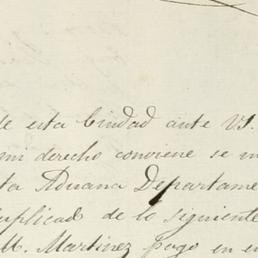 de esta Ciudad ante VS.
mi derecho conviene se
ta Aduana Departame
duplicad de lo siguiente
M. Martinez pago en